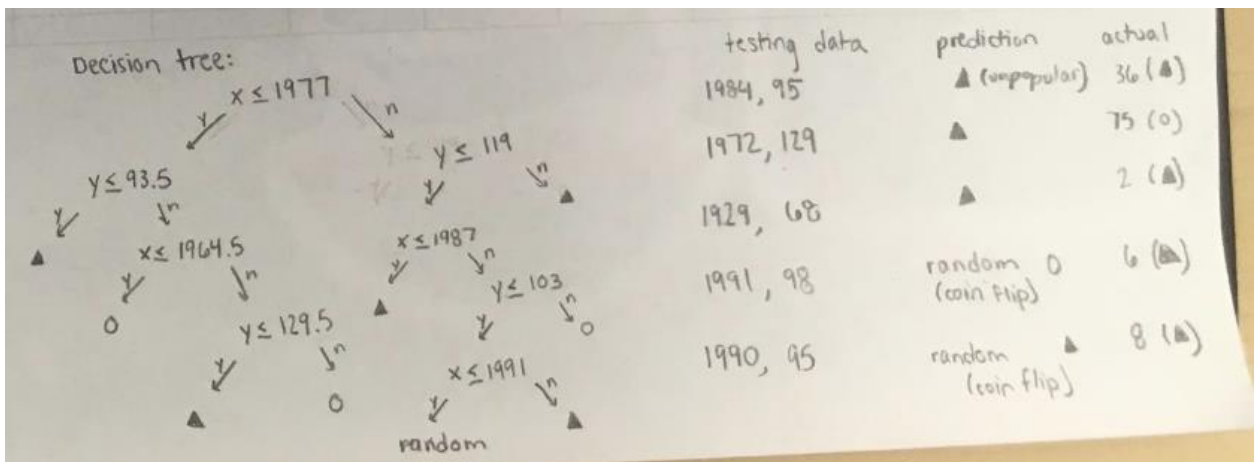 Decision tree:
x ≤ 1977
y n
y ≤ 93.5 y ≤ 119
y n y n
▲ x ≤ 1964.5 x ≤ 1987 ▲
y n y n
O y ≤ 129.5 ▲ y ≤ 103
y n y n
▲ O x ≤ 1991 O
y n
random ▲
testing data prediction actual
1984, 95 ▲ (unpopular) 36 (▲)
1972, 129 ▲ 75 (O)
1929, 68 ▲ 2 (▲)
1991, 98 random O 6 (▲)
(coin flip)
1990, 95 random ▲ 8 (▲)
(coin flip)